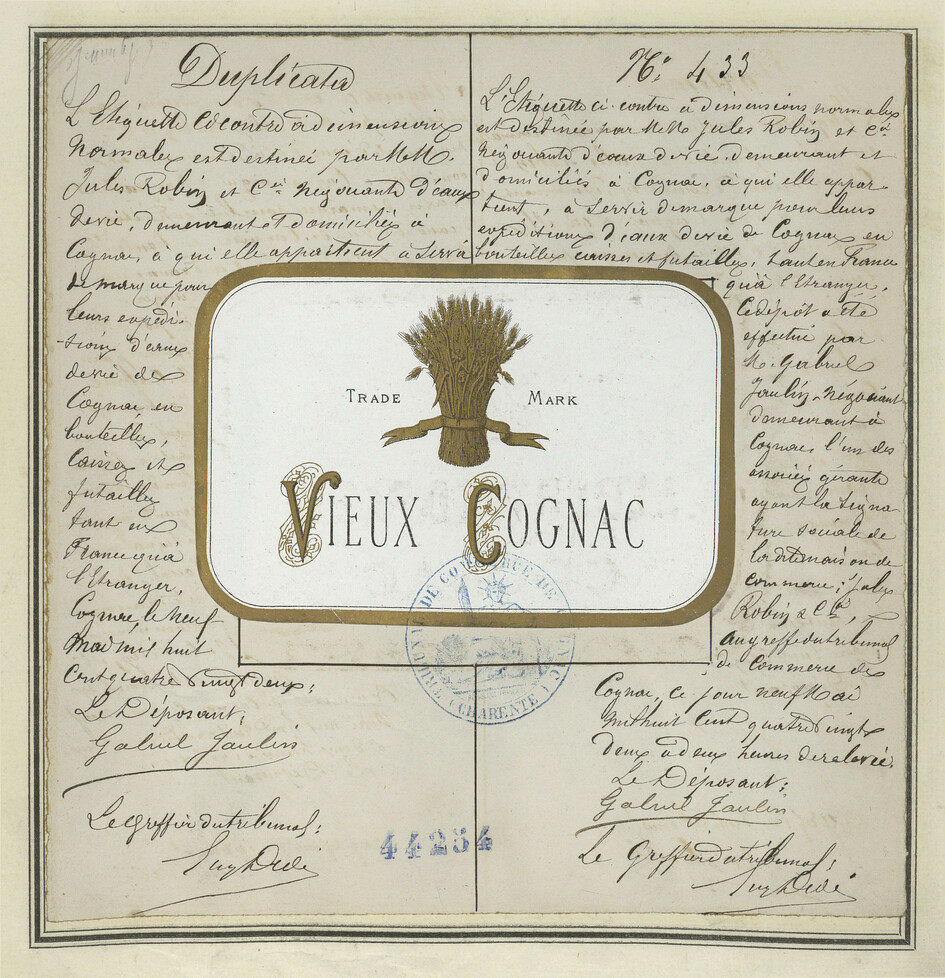 Duplicata
L'Etiquette ci contre à dimensions
normales est destinée par M.M.
Jules Robin et Cie négociants d'eaux
de vie, demeurant et domiciliés à
Cognac, à qui elle appartient à servir
de marque pour
leurs expédi-
tions d'eaux
de vie de
Cognac en
bouteilles,
caisses et
futailles
tant en
France qu'à
l'Etranger.
Cognac, le neuf
Mai mil huit
cent quatre vingt deux;
Le Déposant;
Gabriel Jaulin
Le Greffier du tribunal;
No 433
L'Etiquette ci-contre à dimensions normales
est destinée par M.M. Jules Robin et Cie
négociants d'eaux de vie, demeurant et
domiciliés à Cognac, à qui elle appar
tient, à servir de marque pour leurs
expéditions d'eaux de vie de Cognac en
bouteilles caisses et futailles, tant en France
qu'à l'Etranger.
Ce dépôt a été
effectué par
M. Gabriel
Jaulin, négociant
demeurant à
Cognac, l'un des
associés gérants
ayant la signa
ture sociale de
la dite maison de
commerce, Jules
Robin & Cie,
au greffe du tribunal
de Commerce de
Cognac, ce jour neuf Mai
mil huit cent quatre vingt
deux à deux heures de relevée.
Le Déposant;
Gabriel Jaulin
Le Greffier du tribunal;
TRADE MARK
VIEUX COGNAC
TRIBUNAL DE COMMERCE DE COGNAC
(CHARENTE)
44254